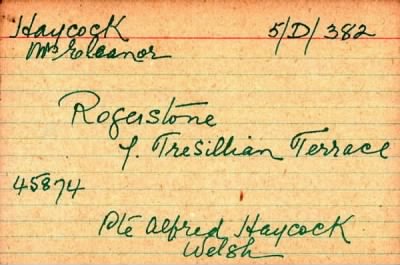 Haycock 5/D/382
Mrs Eleanor
Rogerstone
7. Tresillian Terrace
45874
Pte Alfred Haycock
Welsh